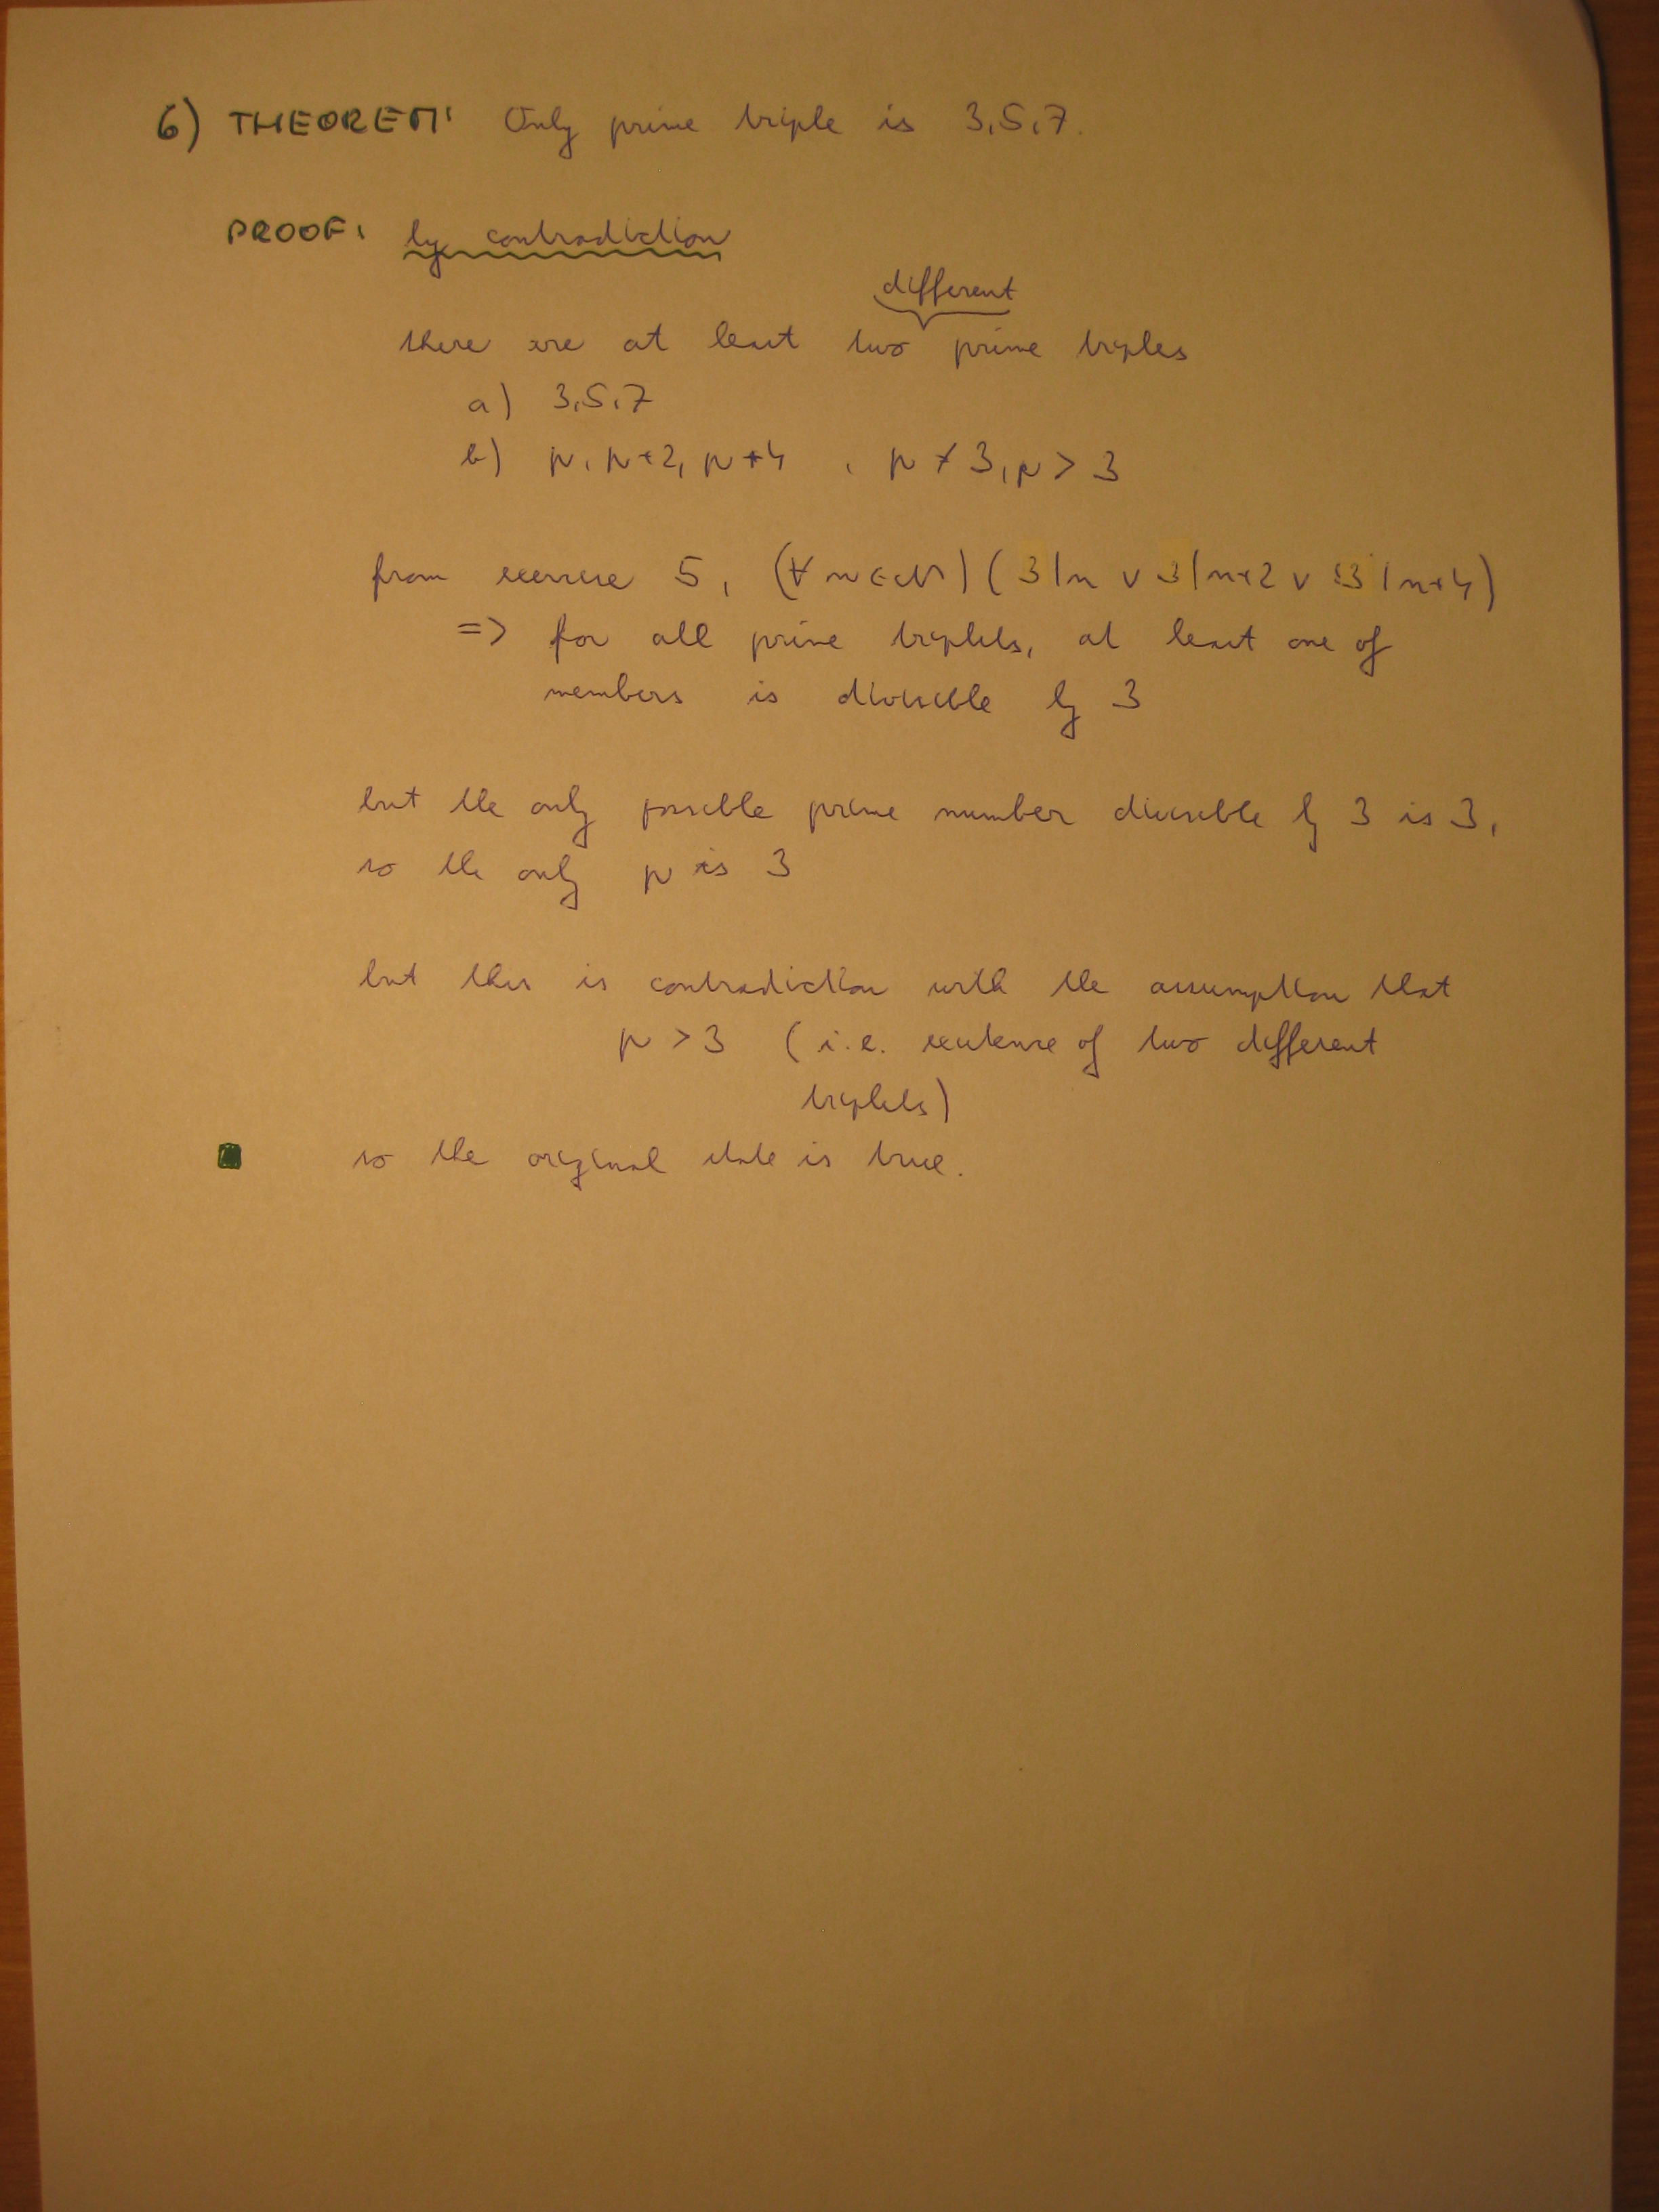 6) THEOREM: Only prime triple is 3,5,7.
PROOF: by contradiction
different
there are at least two prime triples
a) 3,5,7
b) p, p+2, p+4 , p ≠ 3, p > 3
from exercise 5, (∀ n ∈ N) ( 3|n ∨ 3|n+2 ∨ 3|n+4)
=> for all prime triplets, at least one of
members is divisible by 3
but the only possible prime number divisible by 3 is 3,
so the only p is 3
but this is contradiction with the assumption that
p > 3 (i.e. existence of two different
triplets)
so the original state is true.